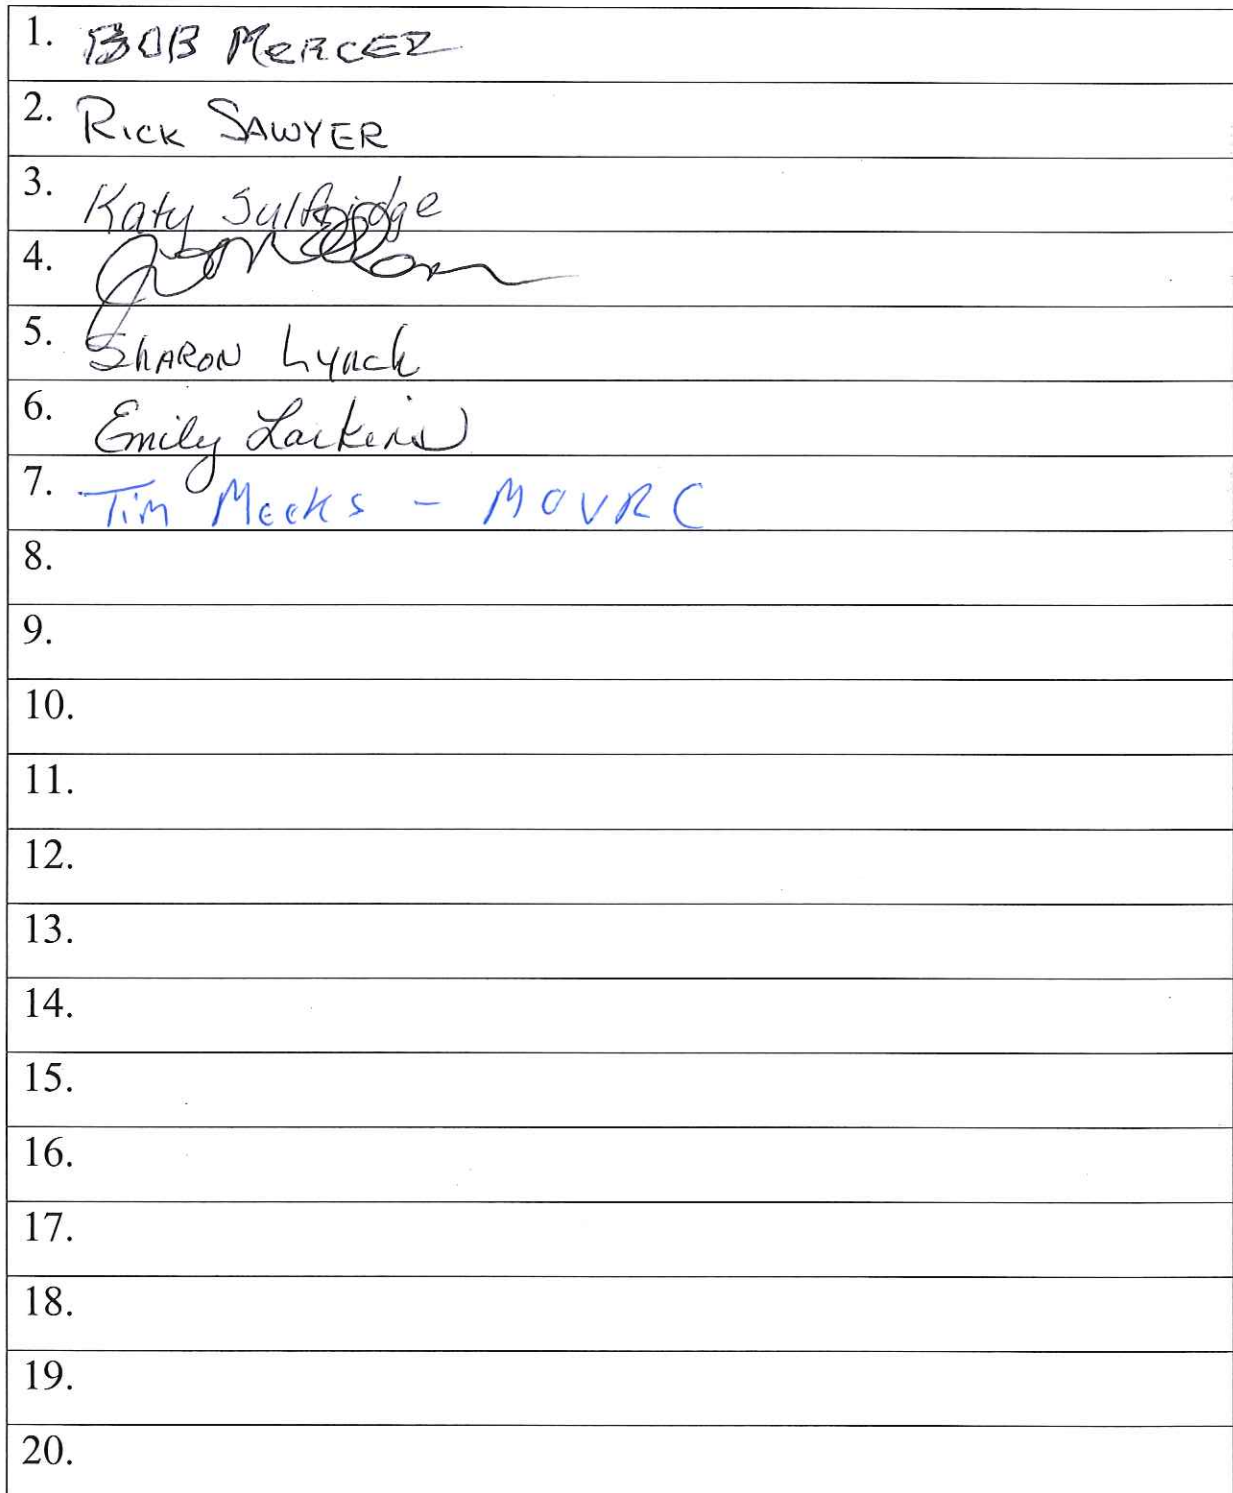 1. BOB MERCER
2. RICK SAWYER
3. Katy Sulfridge
4.
5. SHARON Lynch
6. Emily Larkins
7. Tim Meeks - MOVRC
8.
9.
10.
11.
12.
13.
14.
15.
16.
17.
18.
19.
20.